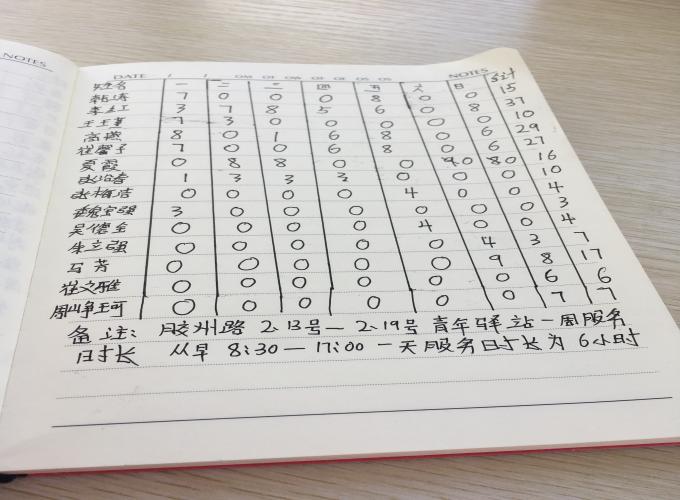 NOTES
DATE NOTES
姓名 一 二 三 四 五 六 日 合计
韩涛 7 0 0 0 8 0 0 15
李红 3 7 8 5 6 0 8 37
7 3 0 0 0 0 0 10
高燕 8 0 1 6 8 0 6 29
崔馨予 7 0 0 6 8 0 6 27
夏霞 0 8 8 0 0 0 0 16
1 3 3 3 0 0 0 10
0 0 0 0 4 0 0 4
魏宝强 3 0 0 0 0 0 0 3
吴德全 0 0 0 0 4 0 0 4
朱立强 0 0 0 0 0 4 3 7
马芳 0 0 0 0 0 9 8 17
崔文雅 0 0 0 0 0 0 6 6
0 0 0 0 0 0 7 7
备注: 胶州路 2.13号—2.19号 青年驿站一周服务
时长 从早 8:30—17:00 一天服务时长为 6小时